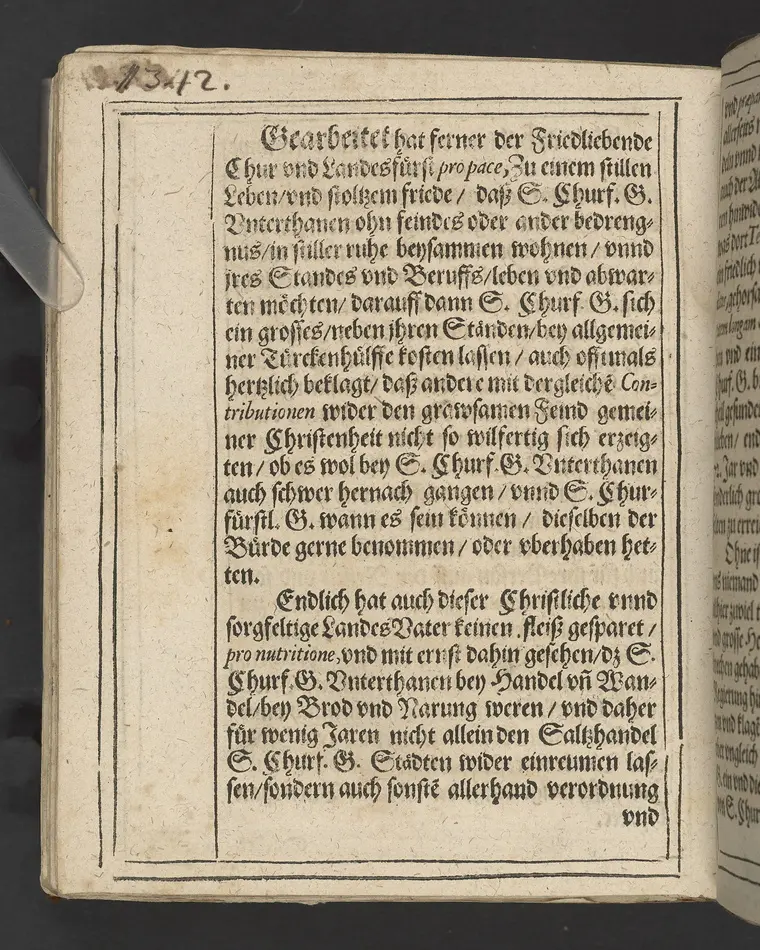 1342.
Gearbeitet hat ferner der Friedliebende
Chur vnd Landesfürst pro pace, Zu einem stillen
Leben/vnd stoltzem friede / daß S. Churf. G.
Vnterthanen ohn feindes oder ander bedreng-
nus/in stiller ruhe beysammen wohnen / vnnd
jres Standes vnd Beruffs/leben vnd abwar-
ten möchten/ darauff dann S. Churf. G. sich
ein grosses/neben jhren Ständen/bey allgemei-
ner Türckenhülffe kosten lassen / auch offtmals
hertzlich beklagt/ daß andere mit dergleichē Con-
tributionen wider den grawsamen Feind gemei-
ner Christenheit nicht so wilfertig sich erzeig-
ten / ob es wol bey S. Churf. G. Vnterthanen
auch schwer hernach gangen / vnnd S. Chur-
fürstl. G. wann es sein können / dieselben der
Bürde gerne benommen / oder vberhaben het-
ten.
Endlich hat auch dieser Christliche vnnd
sorgfeltige LandesVater keinen fleiß gesparet /
pro nutritione, vnd mit ernst dahin gesehen/dz S.
Churf. G. Vnterthanen bey Handel vn̄ Wan-
del/bey Brod vnd Narung weren / vnd daher
für wenig Jaren nicht allein den Saltzhandel
S. Churf. G. Städten wider einreumen las-
sen/sondern auch sonstē allerhand verordnung
vnd